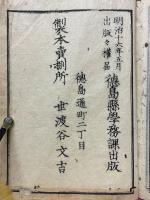 明治十六年五月
出版々權届
德島縣學務課出版
德島通町二丁目
製本賣捌所
世渡谷文吉